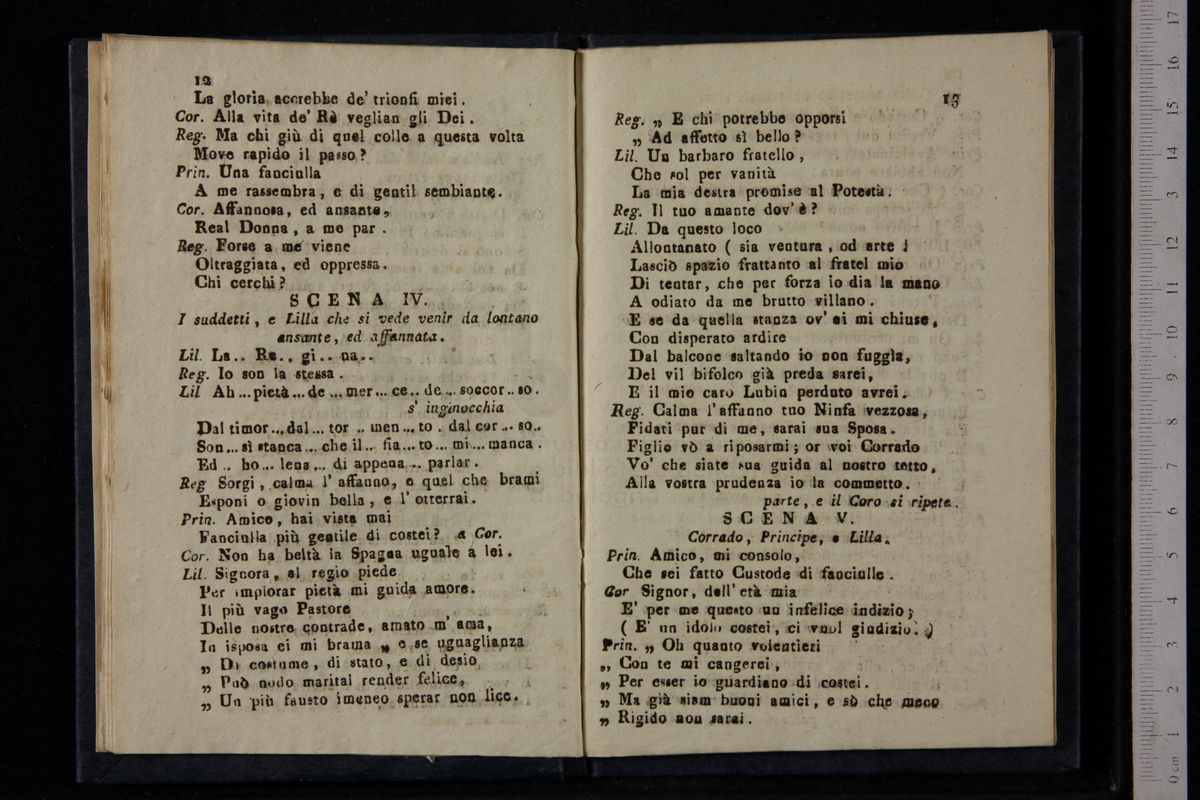 12
La gloria accrebbe de' trionfi miei.
Cor. Alla vita de' Rè veglian gli Dei.
Reg. Ma chi giù di quel colle a questa volta
Move rapido il passo?
Prin. Una fanciulla
A me rassembra, e di gentil sembiante.
Cor. Affannosa, ed ansante,
Real Donna, a me par.
Reg. Forse a me viene
Oltraggiata, ed oppressa.
Chi cerchi?
SCENA IV.
I suddetti, e Lilla che si vede venir da lontano
ansante, ed affannata.
Lil. La.. Re.. gi.. na..
Reg. Io son la stessa.
Lil Ah... pietà... de... mer... ce.. de... soccor.. so.
s' inginocchia
Dal timor... dal... tor.. men... to. dal cor... so..
Son... sì stanca... che il... fia... to... mi... manca.
Ed.. ho... lena... di appena... parlar.
Reg Sorgi, calma l' affanno, e quel che brami
Esponi o giovin bella, e l' otterrai.
Prin. Amico, hai vista mai
Fanciulla più gentile di costei? a Cor.
Cor. Non ha beltà la Spagna uguale a lei.
Lil. Signora, al regio piede
Per implorar pietà mi guida amore.
Il più vago Pastore
Delle nostre contrade, amato m' ama,
In isposa ei mi brama „ e se uguaglianza
„ Di costume, di stato, e di desio
„ Può nodo marital render felice,
„ Un più fausto imeneo sperar non lice.
13
Reg. „ E chi potrebbe opporsi
„ Ad affetto sì bello?
Lil. Un barbaro fratello,
Che sol per vanità
La mia destra promise al Potestà.
Reg. Il tuo amante dov' è?
Lil. Da questo loco
Allontanato ( sia ventura, od arte )
Lasciò spazio frattanto al fratel mio
Di tentar, che per forza io dia la mano
A odiato da me brutto villano.
E se da quella stanza ov' ei mi chiuse,
Con disperato ardire
Dal balcone saltando io non fuggìa,
Del vil bifolco già preda sarei,
E il mio caro Lubin perduto avrei.
Reg. Calma l' affanno tuo Ninfa vezzosa,
Fidati pur di me, sarai sua Sposa.
Figlio vò a riposarmi; or voi Corrado
Vo' che siate sua guida al nostro tetto,
Alla vostra prudenza io la commetto.
parte, e il Coro si ripete.
SCENA V.
Corrado, Principe, e Lilla.
Prin. Amico, mi consolo,
Che sei fatto Custode di fanciulle.
Cor Signor, dell' età mia
E' per me questo un infelice indizio;
( E' un idolo costei, ci vuol giudizio. )
Prin. „ Oh quanto volentieri
„ Con te mi cangerei,
„ Per esser io guardiano di costei.
„ Ma già siam buoni amici, e sò che meco
„ Rigido non sarai.
0 cm 1 2 3 4 5 6 7 8 9 10 11 12 13 14 15 16 17